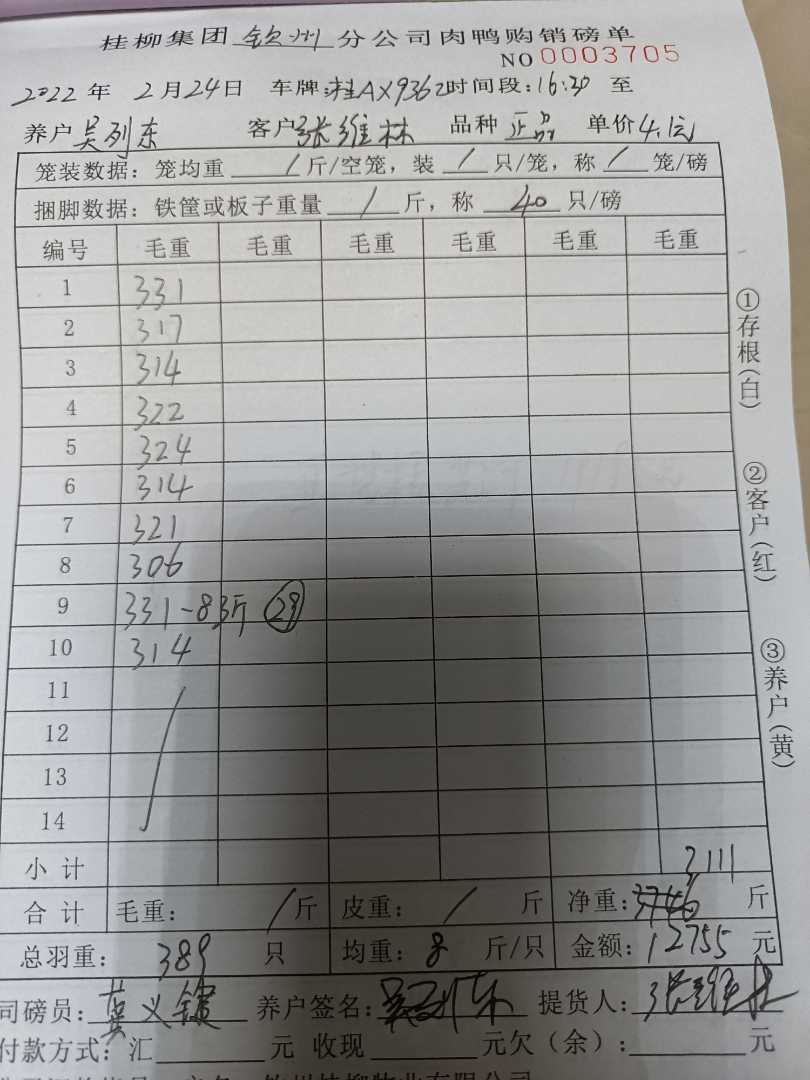 桂柳集团 钦州 分公司肉鸭购销磅单
NO 0003705
2022 年 2 月 24 日 车牌:桂AX9362 时间段:16:30 至
养户 吴列东 客户 张维林 品种 正品 单价 4.1元
笼装数据: 笼均重 / 斤/空笼, 装 / 只/笼, 称 / 笼/磅
捆脚数据: 铁筐或板子重量 / 斤, 称 40 只/磅
编号 毛重 毛重 毛重 毛重 毛重 毛重
1 331
2 317
3 314
4 322
5 324
6 314
7 321
8 306
9 331-83斤 29
10 314
11
12
13
14
小计 3111
合计 毛重: / 斤 皮重: / 斤 净重: 斤
总羽重: 389 只 均重: 8 斤/只 金额: 12755 元
司磅员: 义 养户签名: 吴列东 提货人: 张维林
付款方式: 汇 元 收现 元欠(余): 元
①存根(白)
②客户(红)
③养户(黄)